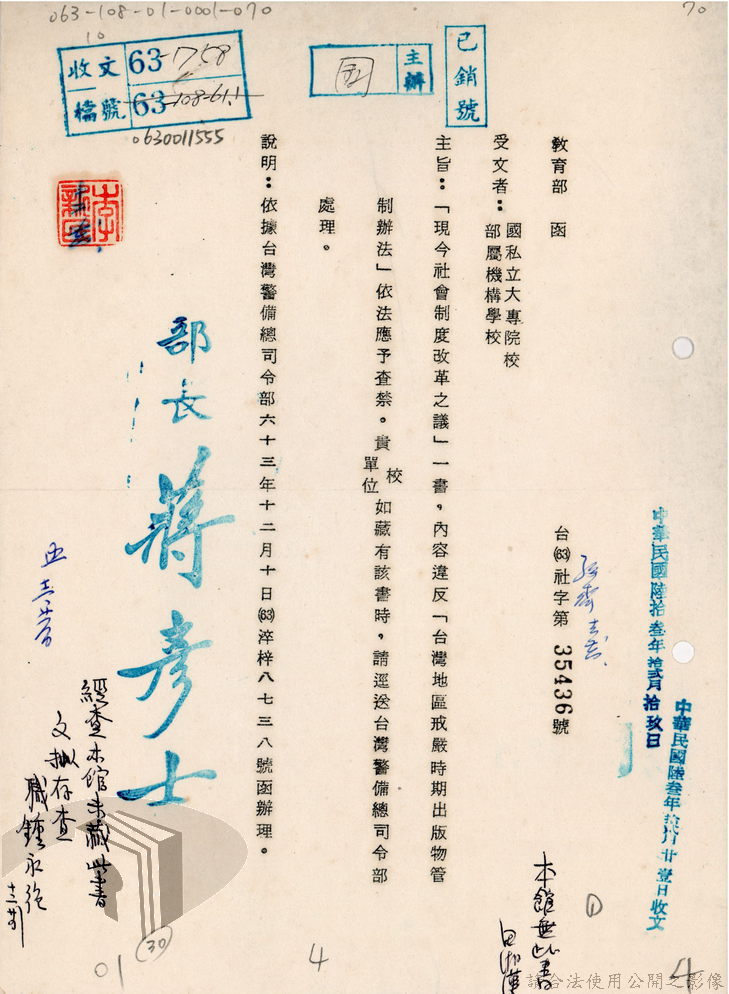 063-108-01-0001-070
70
10
收文 63-1758
檔號 63-108-61.1
0630011555
主辦
已銷號
教育部 函
受文者：國私立大專院校
部屬機構學校
中華民國陸拾叁年拾貳月拾玖日
台(63)社字第 35436 號
主旨：「現今社會制度改革之議」一書，內容違反「台灣地區戒嚴時期出版物管
制辦法」依法應予查禁。貴校
單位
如藏有該書時，請逕送台灣警備總司令部
處理。
說明：依據台灣警備總司令部六十三年十二月十日(63)淬梓八七三八號函辦理。
部長 蔣彥士
經查本館未藏此書
文擬存查
本館無此書
①
30
01
4
4
請合法使用公開之影像